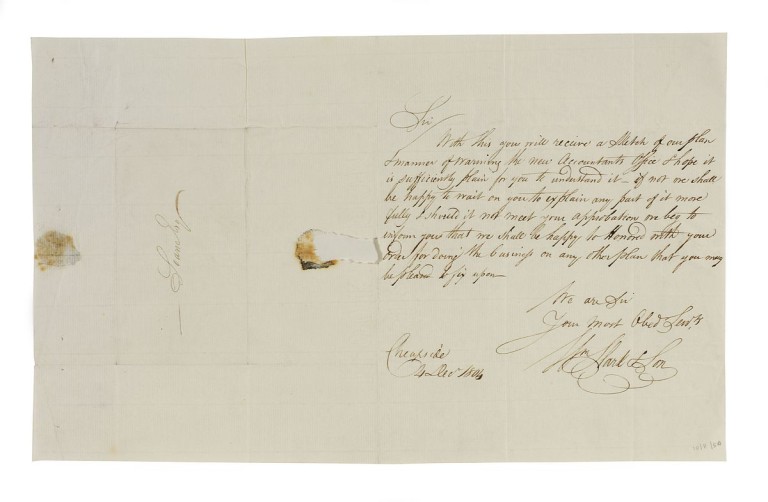 Sir
With this you will receive a Sketch of our plan
& manner of warming the new Accountants Office & hope it
is sufficiently plain for you to understand it – if not we shall
be happy to wait on you to explain any part of it more
fully & should it not meet your approbation we beg to
inform you that we shall be happy to Honored with your
order for doing the business on any other plan that you may
be pleased to fix upon –
We are Sir
Your most Obed Servts
Wm & Son
Cheapside
4 Dec 1804
Soane Esqr